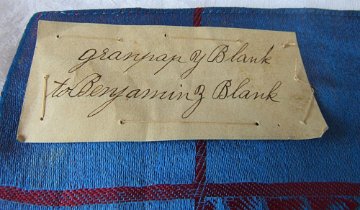 granpap Y Blank
to Benjamin Z Blank